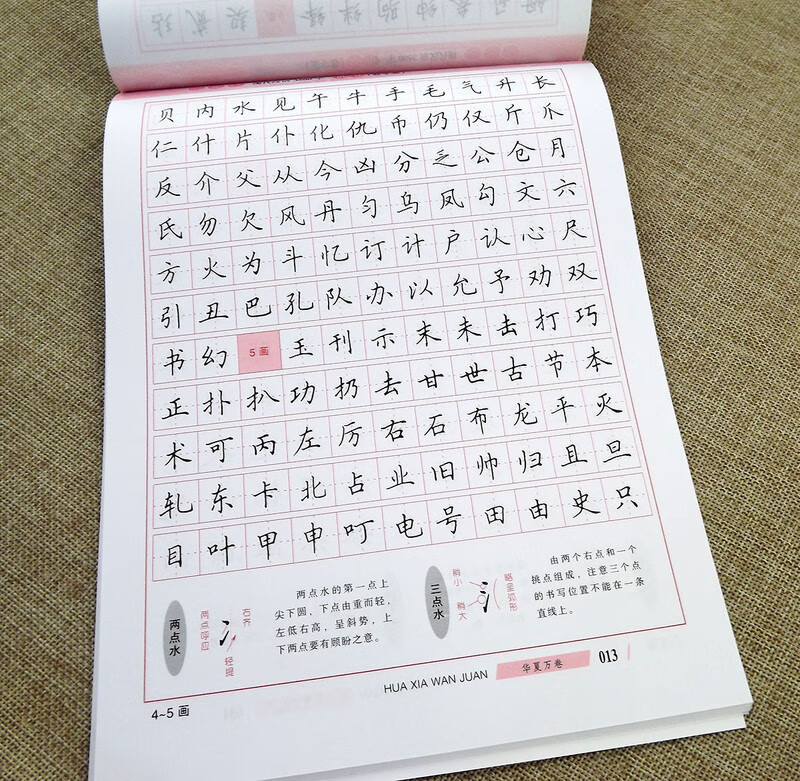 贝内水见午牛手毛气升长
仁什片仆化仇币仍仅斤爪
反介父从今凶分乏公仓月
氏勿欠风丹匀乌凤勾文六
方火为斗忆订计户认心尺
引丑巴孔队办以允予劝双
书幻5画玉刊示末未击打巧
正扑扒功扔去甘世古节本
术可丙左厉右石布龙平灭
轧东卡北占业旧帅归且旦
目叶甲申叮电号田由史只
两点水
两点呼应
右齐
轻提
两点水的第一点上
尖下圆，下点由重而轻，
左低右高，呈斜势，上
下两点要有顾盼之意。
三点水
稍小
稍大
略呈弧形
由两个右点和一个
挑点组成，注意三个点
的书写位置不能在一条
直线上。
4~5 画
HUA XIA WAN JUAN
华夏万卷
013